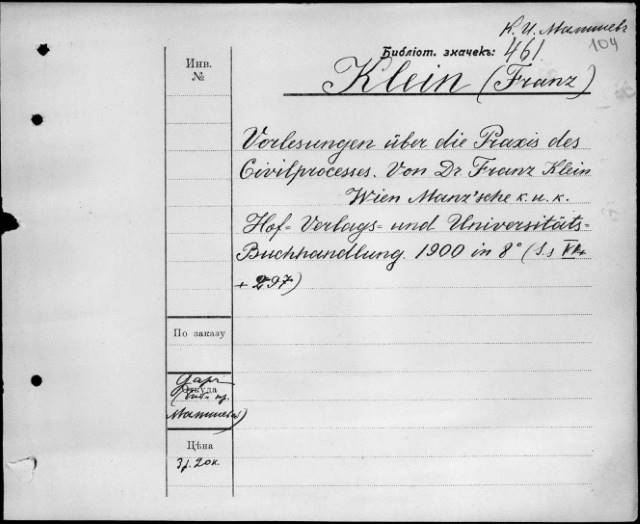 К. И. Малышевъ
104
Библіот. значекъ: 461
Klein (Franz)
Инв.
№
Vorlesungen über die Praxis des
Civilprocesses. Von Dr Franz Klein
Wien Manz'sche k. u. k.
Hof- Verlags- und Universitäts-
Buchhandlung. 1900 in 8° (S.s VII
+ 297)
По заказу
Откуда
Даръ
Малышева)
Цѣна
3 р. 20 к.